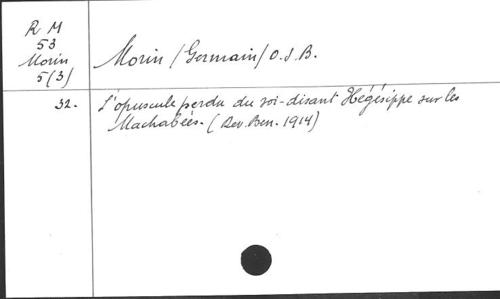 R M
53
Morin
5(3)
Morin (Germain) O.S.B.
32.
L'opuscule perdu du soi-disant Hégésippe sur les
Machabées. (Rev. Ben. 1914)